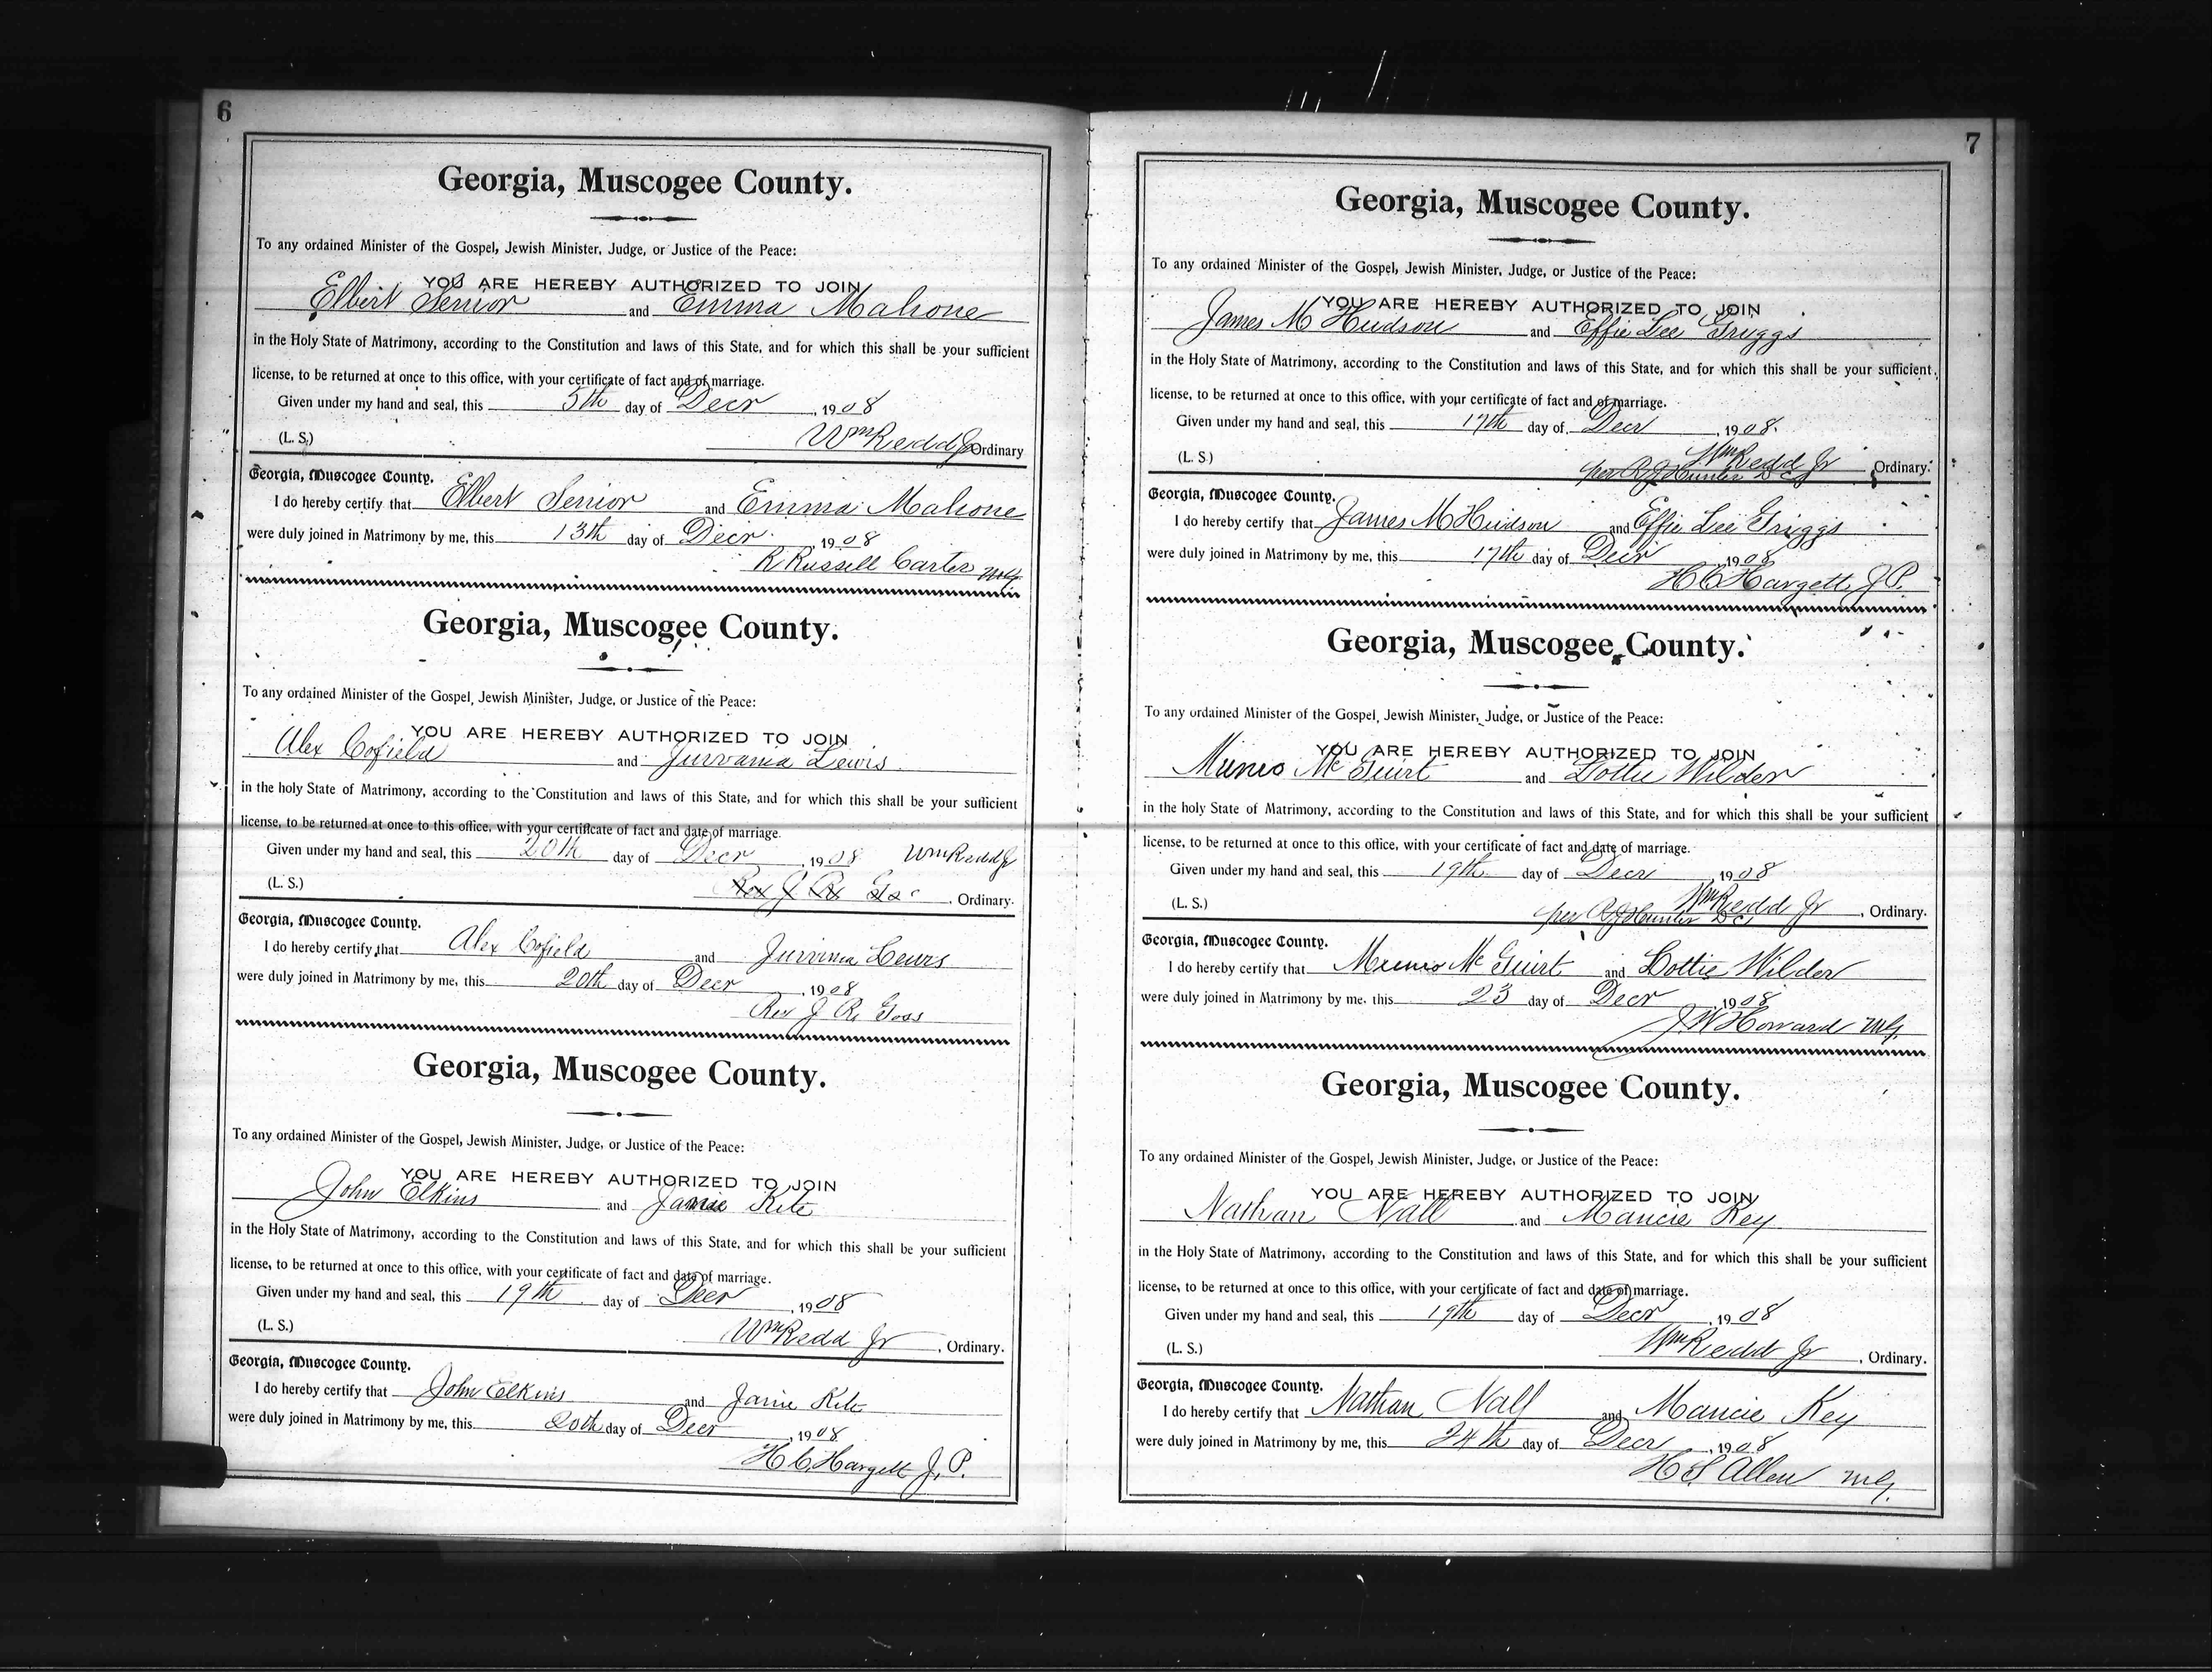 6
Georgia, Muscogee County.
To any ordained Minister of the Gospel, Jewish Minister, Judge, or Justice of the Peace:
YOU ARE HEREBY AUTHORIZED TO JOIN
Elbert Senior and Emma Mahone
in the Holy State of Matrimony, according to the Constitution and laws of this State, and for which this shall be your sufficient
license, to be returned at once to this office, with your certificate of fact and of marriage.
Given under my hand and seal, this 5th day of Decr, 1908
(L. S.) Wm Redd Jr Ordinary
Georgia, Muscogee County.
I do hereby certify that Elbert Senior and Emma Mahone
were duly joined in Matrimony by me, this 13th day of Decr, 1908
R Russell Carter M.G.
Georgia, Muscogee County.
To any ordained Minister of the Gospel, Jewish Minister, Judge, or Justice of the Peace:
YOU ARE HEREBY AUTHORIZED TO JOIN
Alex Cofield and Jurvania Lewis
in the holy State of Matrimony, according to the Constitution and laws of this State, and for which this shall be your sufficient
license, to be returned at once to this office, with your certificate of fact and date of marriage.
Given under my hand and seal, this 20th day of Decr, 1908 Wm Redd Jr
(L. S.) , Ordinary.
Georgia, Muscogee County.
I do hereby certify that Alex Cofield and Lewis
were duly joined in Matrimony by me, this 20th day of Decr, 1908
Rev J. R. Goss
Georgia, Muscogee County.
To any ordained Minister of the Gospel, Jewish Minister, Judge, or Justice of the Peace:
YOU ARE HEREBY AUTHORIZED TO JOIN
John Elkins and Janie Kite
in the Holy State of Matrimony, according to the Constitution and laws of this State, and for which this shall be your sufficient
license, to be returned at once to this office, with your certificate of fact and date of marriage.
Given under my hand and seal, this 19th day of Decr, 1908
(L. S.) Wm Redd Jr, Ordinary.
Georgia, Muscogee County.
I do hereby certify that John Elkins and Janie Kite
were duly joined in Matrimony by me, this 20th day of Decr, 1908
H. C. Hargett J. P.
7
Georgia, Muscogee County.
To any ordained Minister of the Gospel, Jewish Minister, Judge, or Justice of the Peace:
YOU ARE HEREBY AUTHORIZED TO JOIN
James M Hudson and Effie Lee Griggs
in the Holy State of Matrimony, according to the Constitution and laws of this State, and for which this shall be your sufficient,
license, to be returned at once to this office, with your certificate of fact and of marriage.
Given under my hand and seal, this 17th day of Decr, 1908.
(L. S.) Wm Redd Jr Ordinary.
per R J Hunter D C
Georgia, Muscogee County.
I do hereby certify that James M Hudson and Effie Lee Griggs
were duly joined in Matrimony by me, this 17th day of Decr, 1908
H C Hargett J. P.
Georgia, Muscogee County.
To any ordained Minister of the Gospel, Jewish Minister, Judge, or Justice of the Peace:
YOU ARE HEREBY AUTHORIZED TO JOIN
Mc Guirt and Lottie Wilder
in the holy State of Matrimony, according to the Constitution and laws of this State, and for which this shall be your sufficient
license, to be returned at once to this office, with your certificate of fact and date of marriage.
Given under my hand and seal, this 19th day of Decr, 1908
(L. S.) Wm Redd Jr, Ordinary.
per R J Hunter D C
Georgia, Muscogee County.
I do hereby certify that Mc Guirt and Lottie Wilder
were duly joined in Matrimony by me, this 23 day of Decr, 1908
J. W Howard M.G.
Georgia, Muscogee County.
To any ordained Minister of the Gospel, Jewish Minister, Judge, or Justice of the Peace:
YOU ARE HEREBY AUTHORIZED TO JOIN
Nathan Nall and Mancie Key
in the Holy State of Matrimony, according to the Constitution and laws of this State, and for which this shall be your sufficient
license, to be returned at once to this office, with your certificate of fact and date of marriage.
Given under my hand and seal, this 19th day of Decr, 1908
(L. S.) Wm Redd Jr, Ordinary.
Georgia, Muscogee County.
I do hereby certify that Nathan Nall and Mancie Key
were duly joined in Matrimony by me, this 24th day of Decr, 1908
H S Allen M.G.